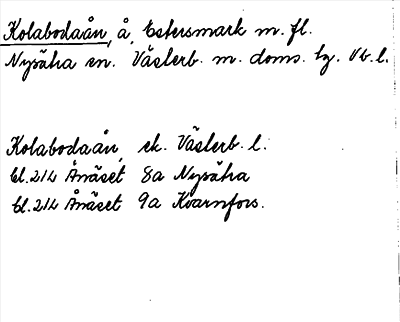 Kolabodaån, å, Estersmark m. fl.
Nysätra sn. Västerb. m. doms. hg. Vb. l.
Kolabodaån, ek. Västerb. l.
bl. 214 Ånäset 8a Nysätra
bl. 214 Ånäset 9a Kvarnfors.